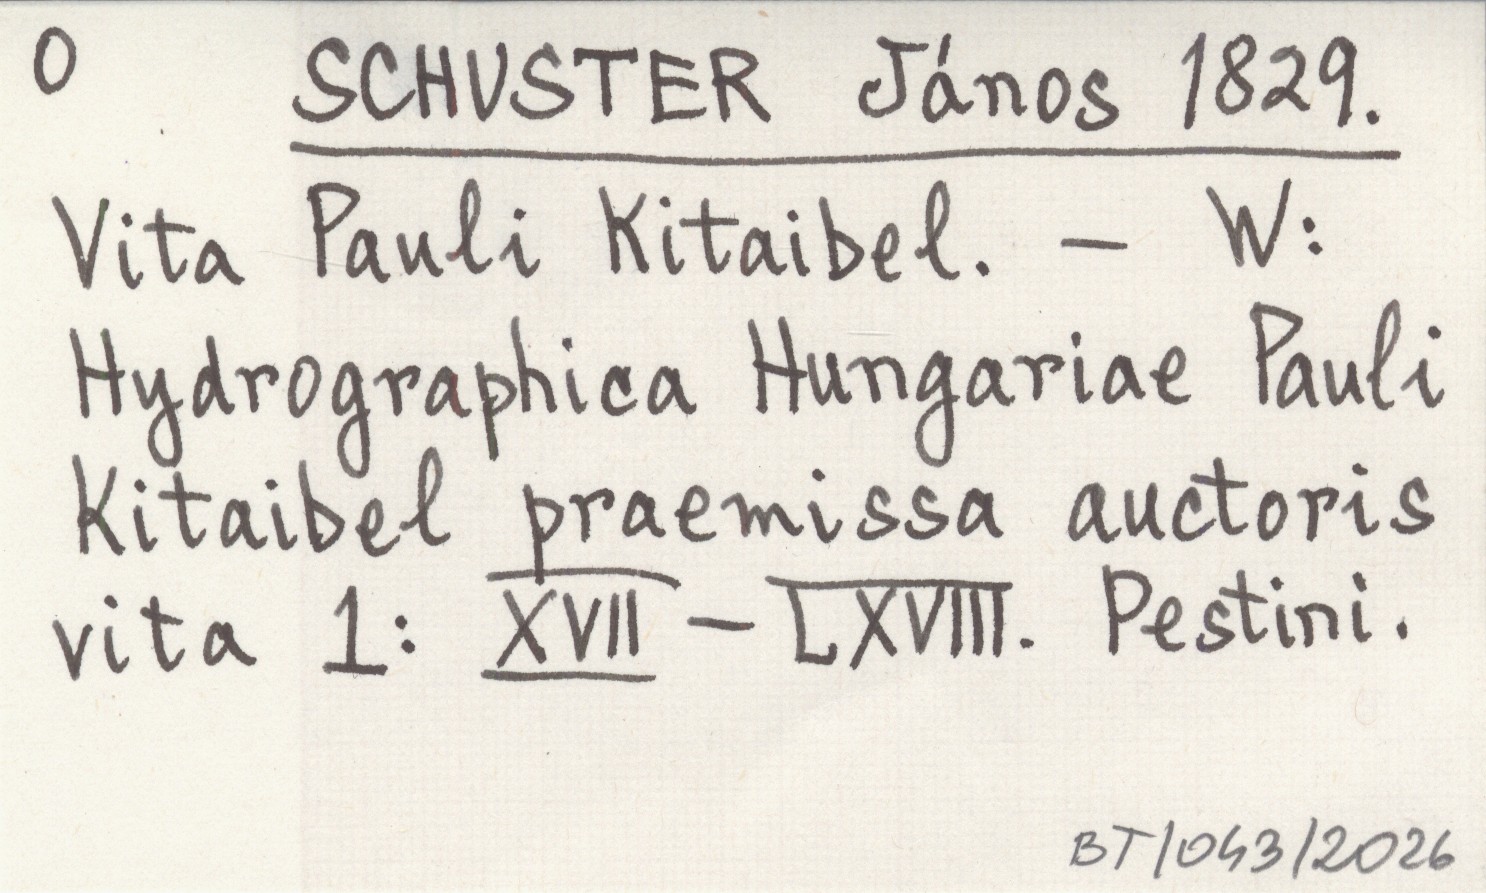 O SCHUSTER János 1829.
Vita Pauli Kitaibel. – W:
Hydrographica Hungariae Pauli
Kitaibel praemissa auctoris
vita 1: XVII – LXVIII. Pestini.
BT/043/2026